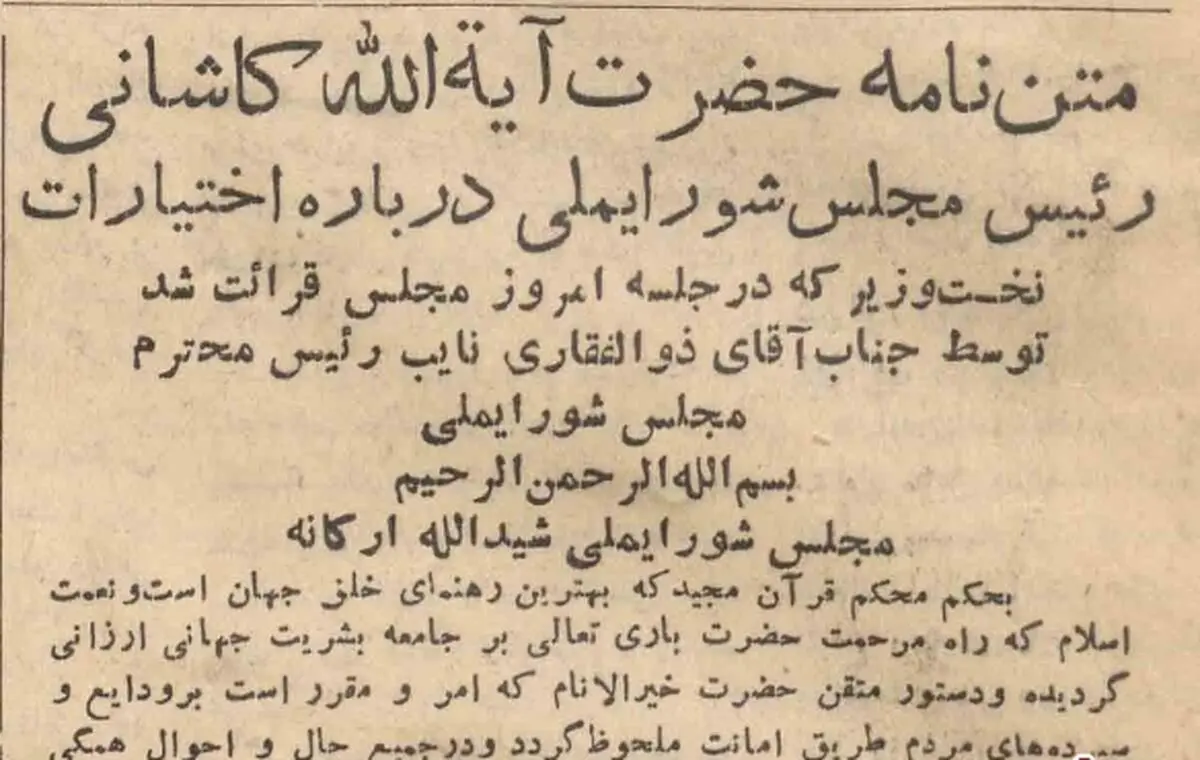 متن نامه حضرت آیةالله کاشانی
رئیس مجلس شورایملی درباره اختیارات
نخست‌وزیر که درجلسه امروز مجلس قرائت شد
توسط جناب آقای ذوالفقاری نایب رئیس محترم
مجلس شورایملی
بسم‌الله‌الرحمن‌الرحیم
مجلس شورایملی شیدالله ارکانه
بحکم محکم قرآن مجیدکه بهترین رهنمای خلق جهان است‌ونعمت
اسلام که راه مرحمت حضرت باری تعالی بر جامعه بشریت جهانی ارزانی
گردیده ودستور متقن حضرت خیرالانام که امر و مقرر است برودایع و
سپرده‌های مردم طریق امانت ملحوظ گردد ودرجمیع حال و احوال همگی